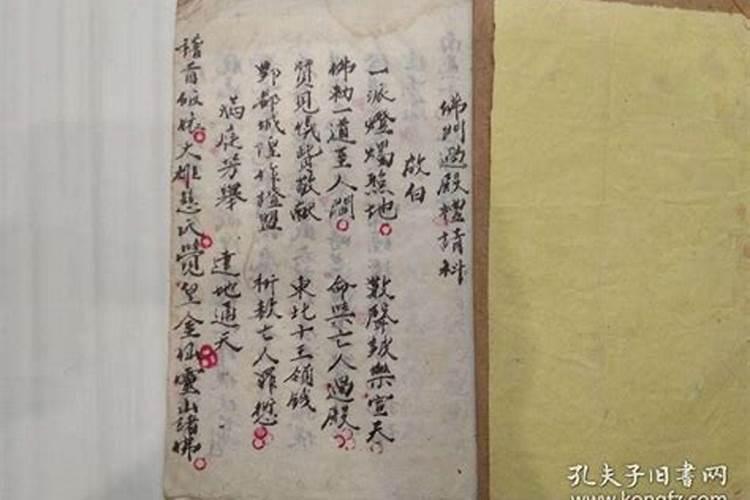 佛门過殿禮請科
啟白
一派燈燭照地 數聲鼓樂宣天
佛勅一道至人間 命與亡人過殿
見儀費敬献 東北十王領钱
酆都城隍作證盟 祈赦亡人罪愆
满庭芳舉 達地通天
稽首皈依大雄慈氏覺皇金仙靈山諸佛
孔夫子旧书网
www.kongfz.com